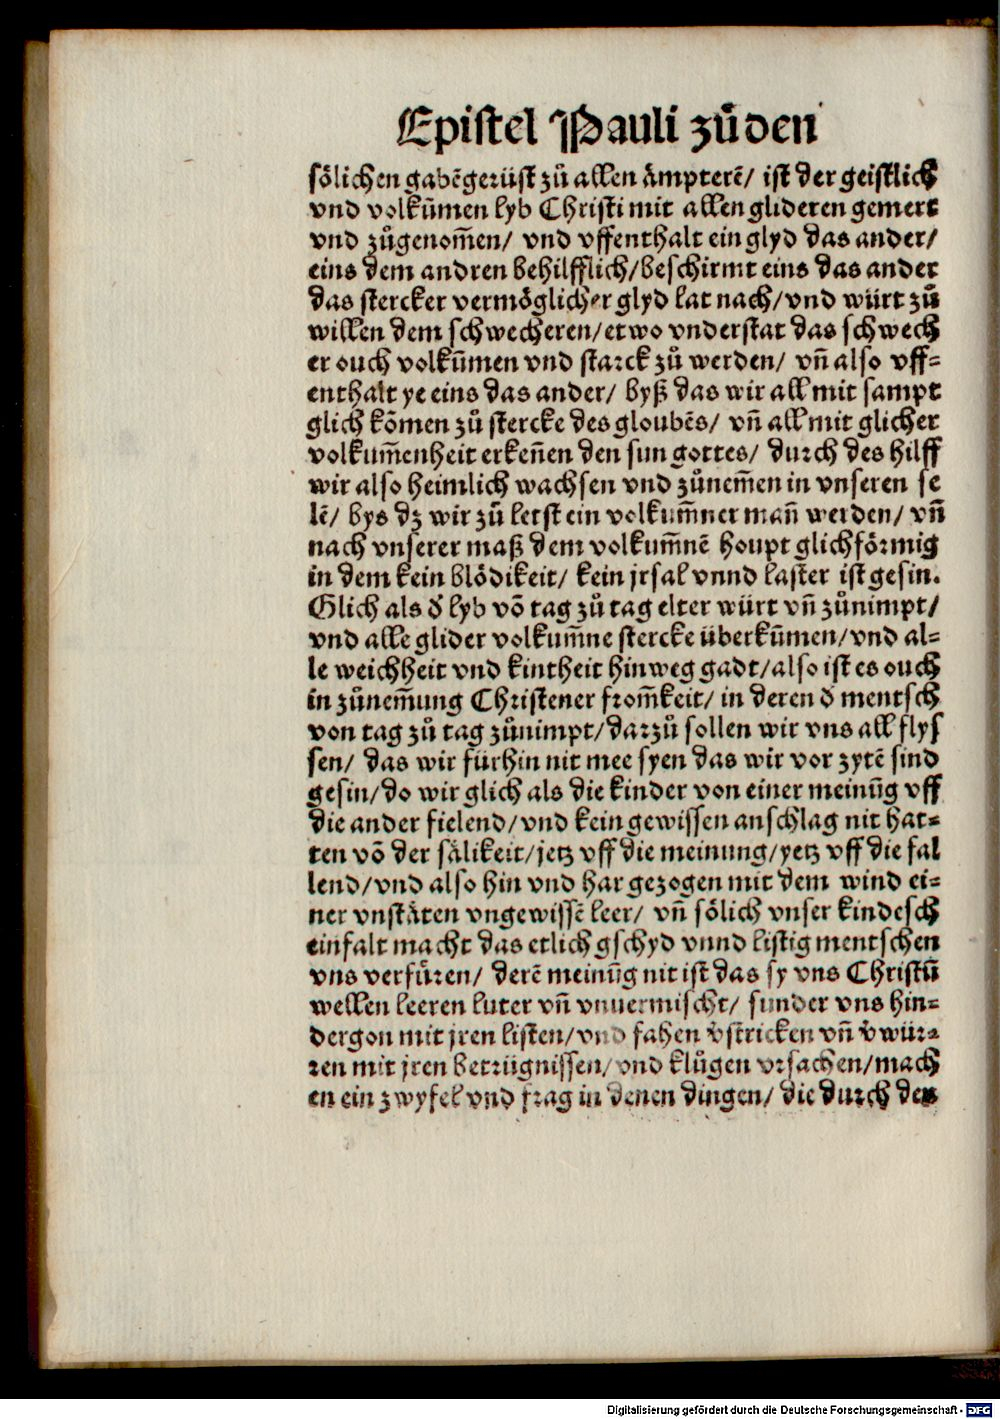 Epistel Pauli zů den
sölichen gabē gerüst zů allen ämpterē/ ist der geistlich
vnd volkūmen lyb Christi mit allen glideren gemert
vnd zůgenom̄en/ vnd vffenthalt ein glyd das ander/
eins dem andren behilfflich/ beschirmt eins das ander
das stercker vermöglicher glyd lat nach/ vnd würt zů
willen dem schwecheren/ etwo vnderstat das schwech
er ouch volkūmen vnd starck zů werden/ vn̄ also vff-
enthalt ye eins das ander/ byß das wir all mit sampt
glich kōmen zů stercke des gloubēs/ vn̄ all mit glicher
volkum̄enheit erken̄en den sun gottes/ durch des hilff
wir also heimlich wachsen vnd zůnem̄en in vnseren se
lē/ bys dz wir zů letst ein volkum̄ner man̄ werden/ vn̄
nach vnserer maß dem volkum̄nē houpt glichförmig
in dem kein blödikeit/ kein jrsal vnnd laster ist gesin.
Glich als d̄ lyb vō tag zů tag elter würt vn̄ zůnimpt/
vnd alle glider volkum̄ne stercke überkūmen/ vnd al-
le weichheit vnd kintheit hinweg gadt/ also ist es ouch
in zůnem̄ung Christener from̄keit/ in deren d̄ mentsch
von tag zů tag zůnimpt/ darzů sollen wir vns all flys
sen/ das wir fürhin nit mee syen das wir vor zytē sind
gesin/ do wir glich als die kinder von einer meinūg vff
die ander fielend/ vnd kein gewissen anschlag nit hat-
ten vō der sälikeit/ jetz vff die meinung/ yetz vff die fal
lend/ vnd also hin vnd har gezogen mit dem wind ei-
ner vnstäten vngewissē leer/ vn̄ sölich vnser kindesch
einfalt macht das etlich gschyd vnnd listig mentschen
vns verfůren/ derē meinūg nit ist das sy vns Christū
wellen leeren luter vn̄ vnuermischt/ sunder vns hin-
dergon mit jren listen/ vnd fahen v̄stricken vn̄ v̄wür-
ren mit jren betrügnissen/ vnd klůgen vrsachen/ mach
en ein zwyfel vnd frag in denen dingen/ die durch den
Digitalisierung gefördert durch die Deutsche Forschungsgemeinschaft - DFG